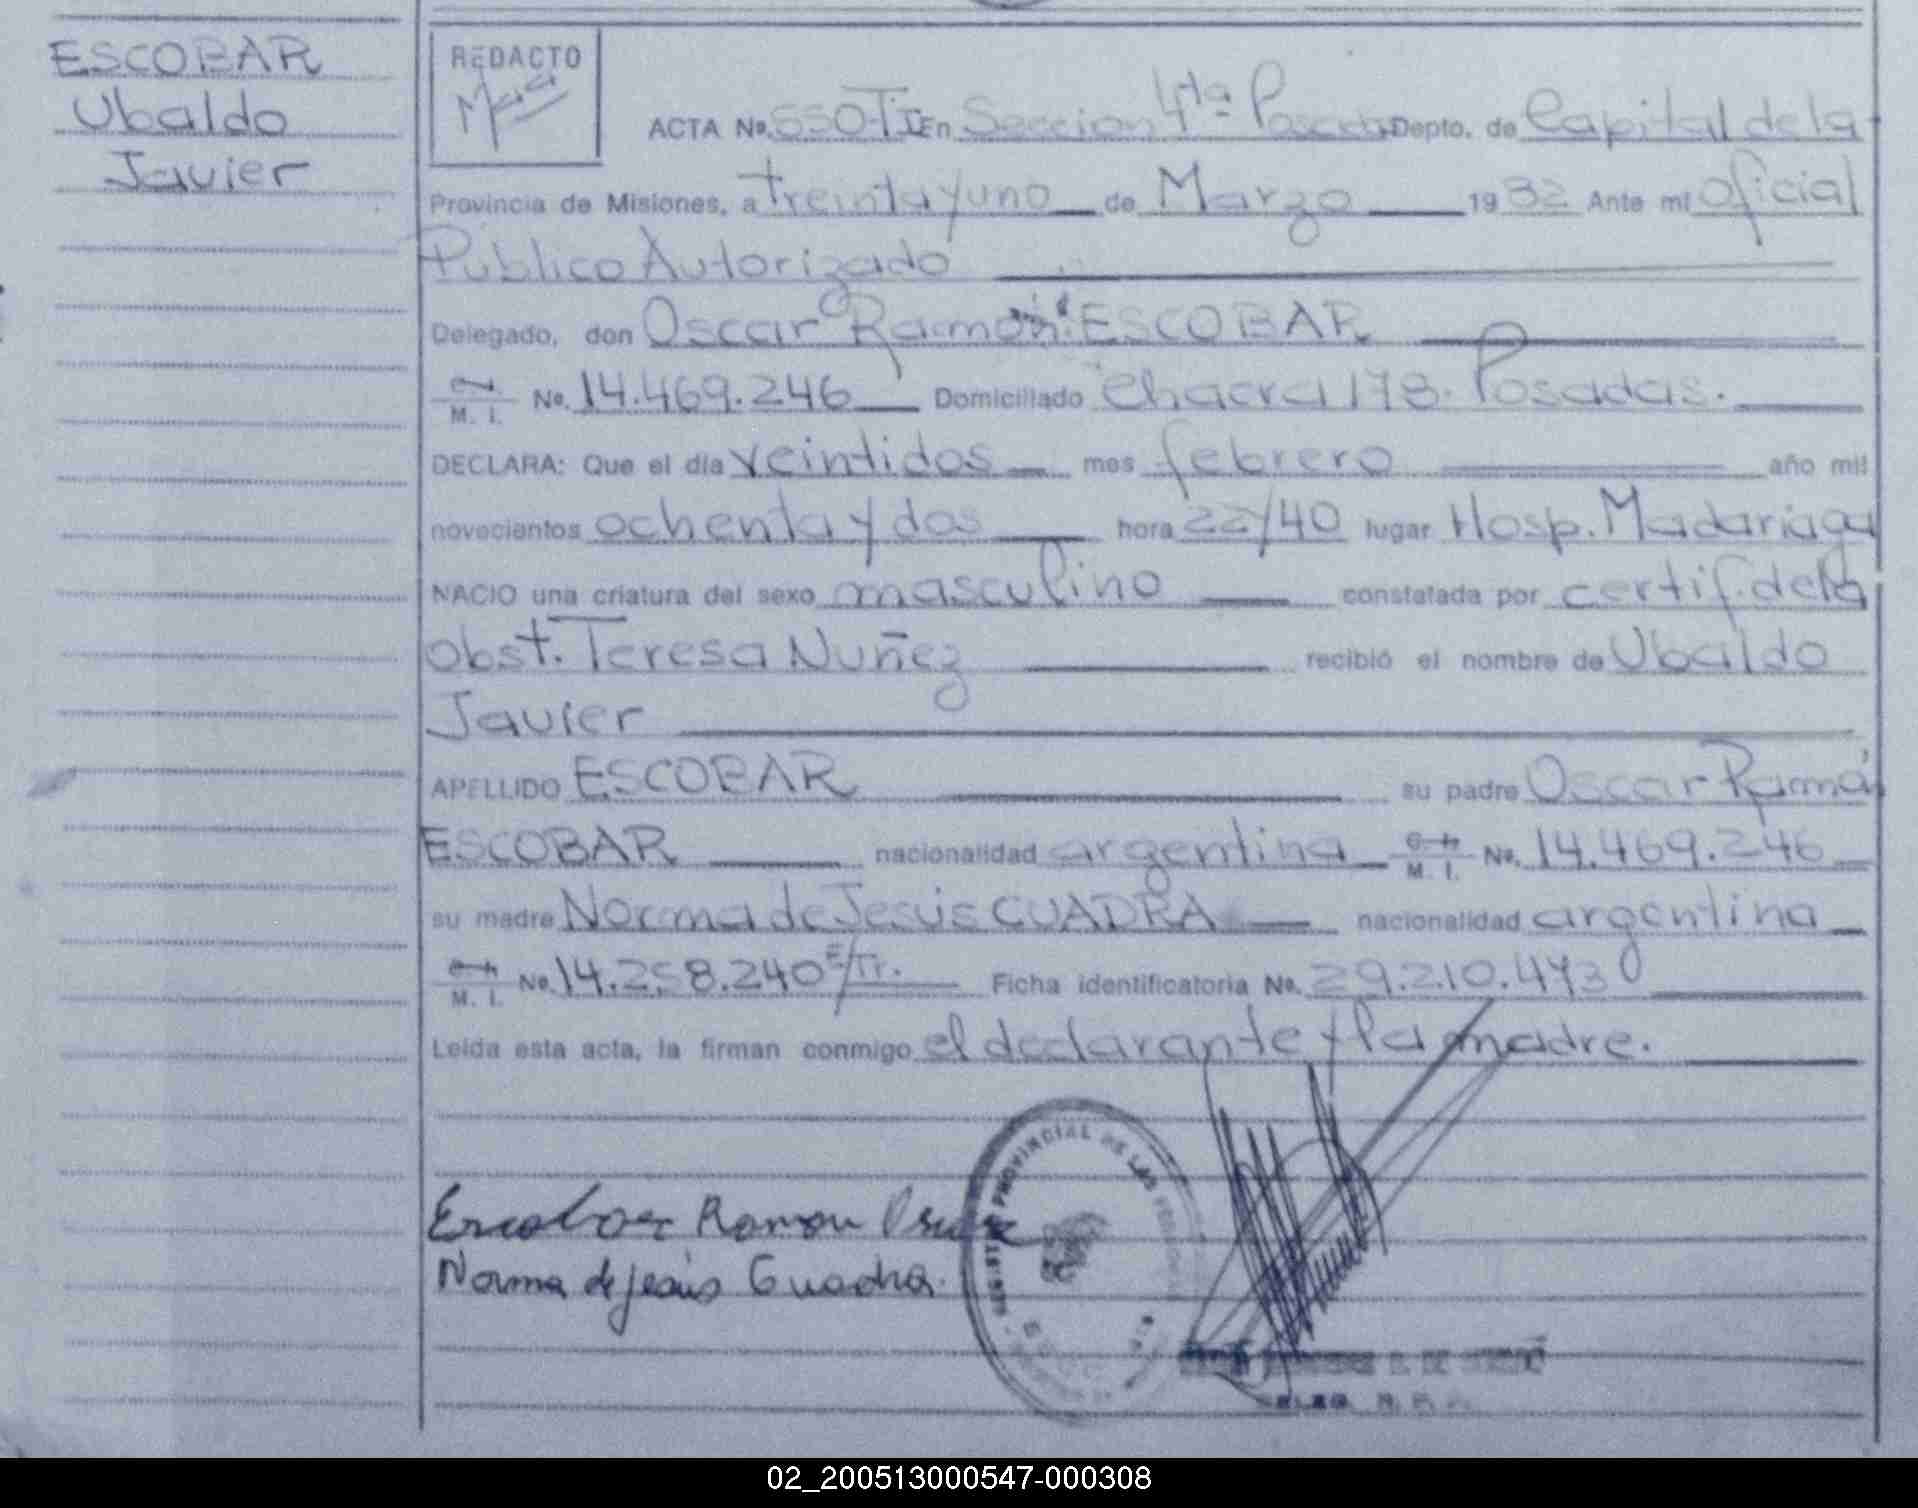 ESCOBAR
Ubaldo
Javier
REDACTO
ACTA No. 550-TI En Seccion 4ta Posadas Depto. de Capital de la
Provincia de Misiones, a treinta y uno de Marzo 1982 Ante mi Oficial
Público Autorizado
Delegado, don Oscar Ramón ESCOBAR
M. I. No. 14.469.246 Domiciliado Chacra 178. Posadas.
DECLARA: Que el día veintidos mes febrero año mil
novecientos ochenta y dos hora 22/40 lugar Hosp. Madariaga
NACIO una criatura del sexo masculino constatada por certif. de la
obst. Teresa Nuñez recibió el nombre de Ubaldo
Javier
APELLIDO ESCOBAR su padre Oscar Ramón
ESCOBAR nacionalidad argentina M. I. No. 14.469.246
su madre Norma de Jesús CUADRA nacionalidad argentina
M. I. No. 14.258.240 E/Tr. Ficha identificatoria No. 29.210.473
Leída esta acta, la firman conmigo el declarante y la madre.
Escobar Ramon Oscar
Norma de Jesús Cuadra.
PROVINCIAL DE LAS PERSONAS
02_200513000547-000308